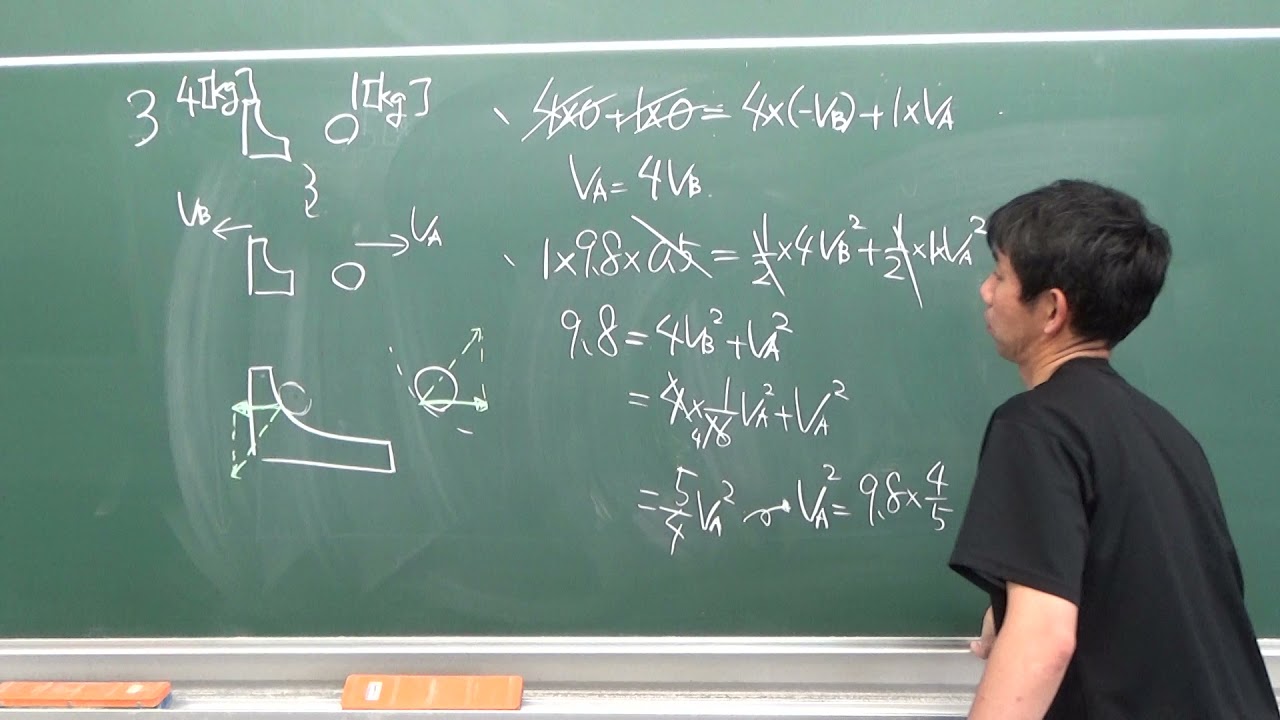 3 4[kg] 1[kg]
V_B V_A
4×0+1×0=4×(-V_B)+1×V_A
V_A=4V_B
1×9.8×0.5=1/2×4V_B²+1/2×1×V_A²
9.8=4V_B²+V_A²
=4×1/16V_A²+V_A²
4
=5/4V_A² → V_A²=9.8×4/5